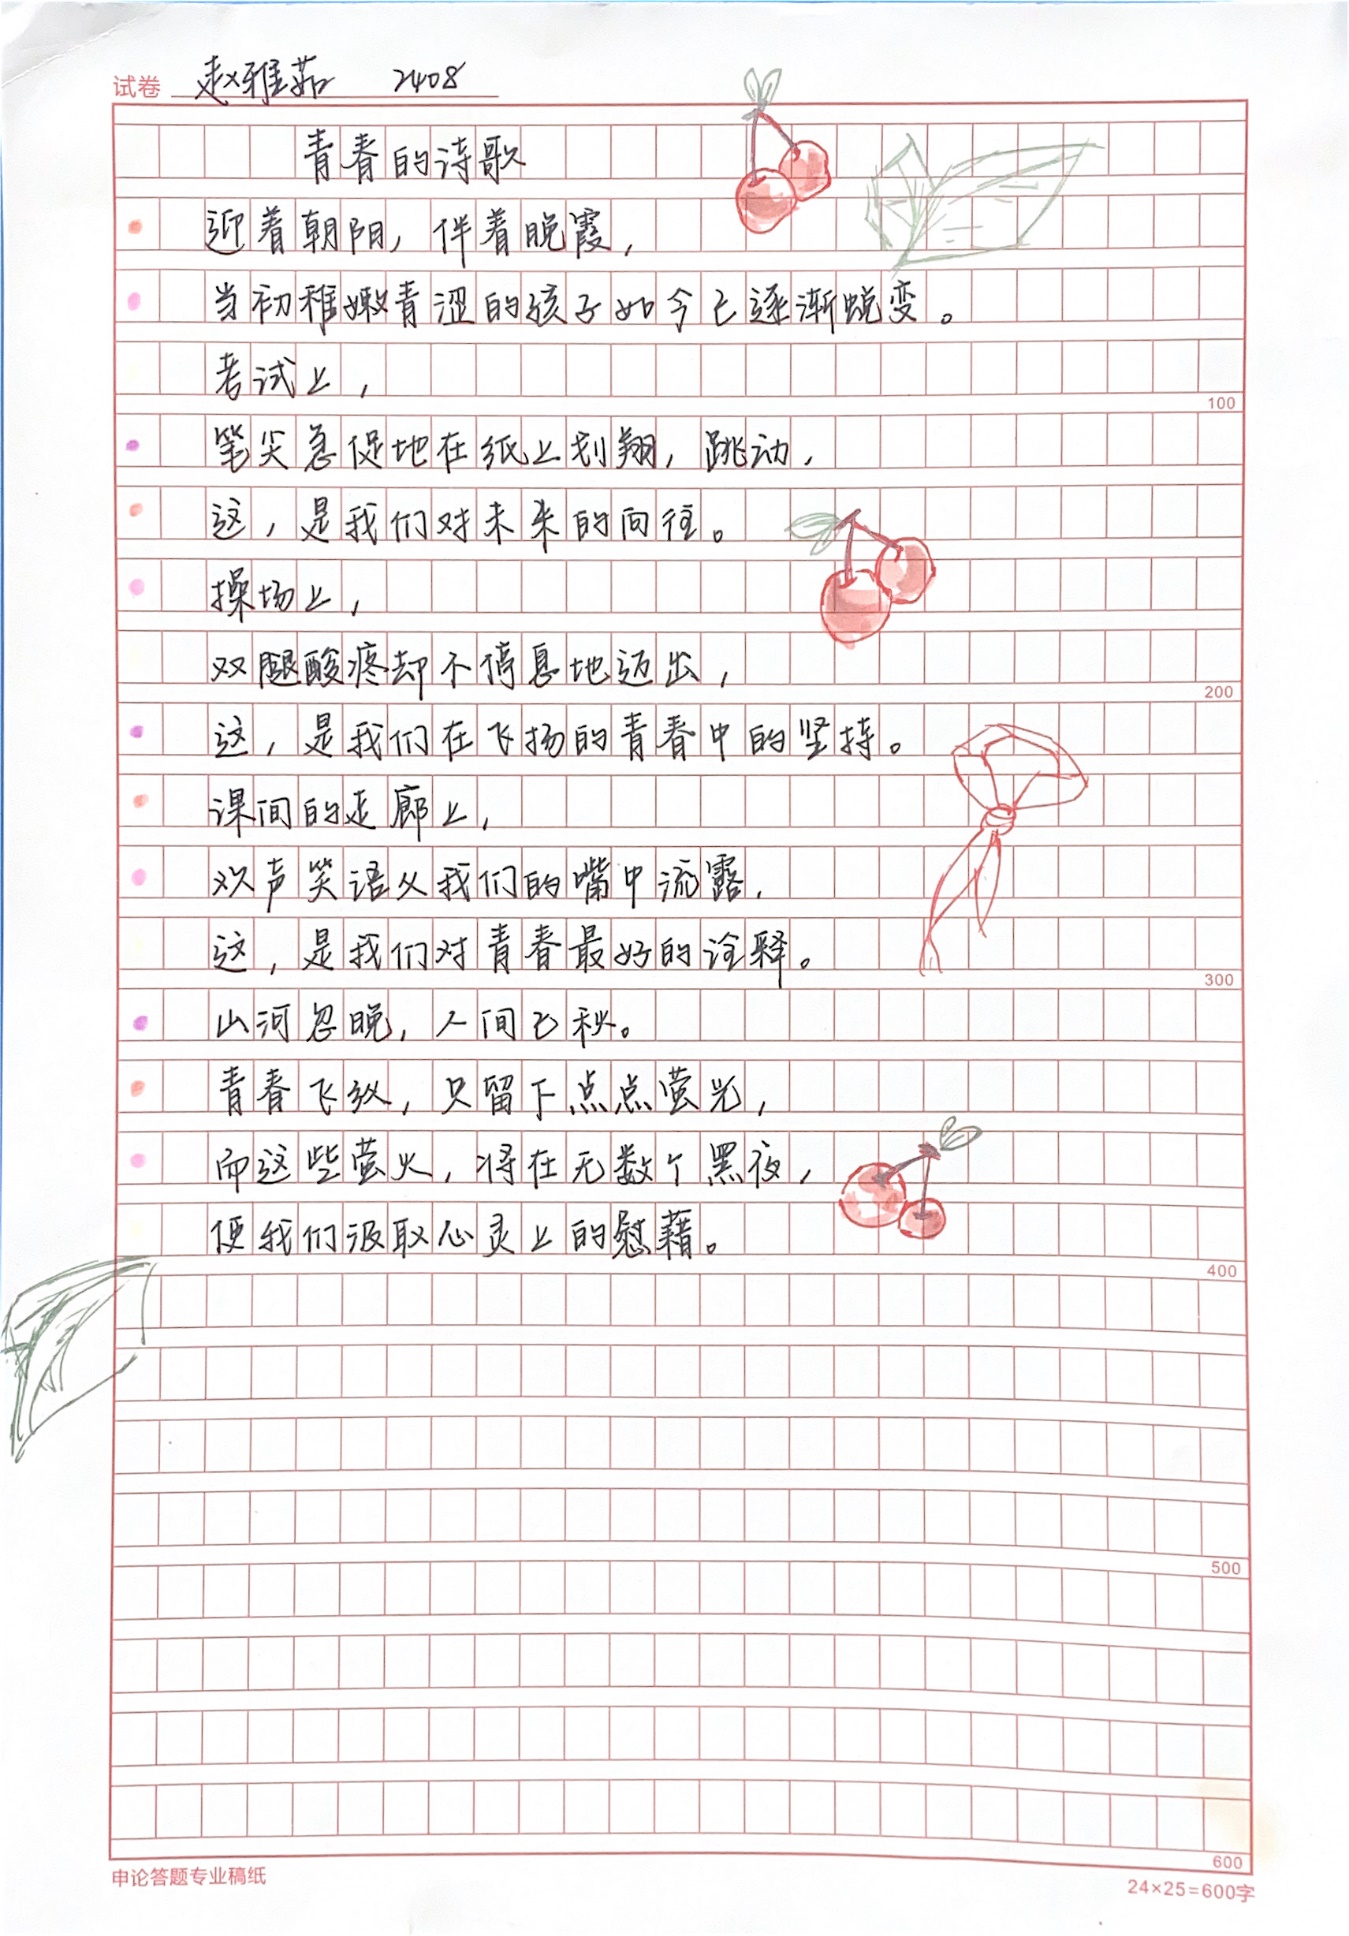 试卷 赵雅茹 2408
青春的诗歌
迎着朝阳，伴着晚霞，
当初稚嫩青涩的孩子如今已逐渐蜕变。
考试上，
100
笔尖急促地在纸上划翔，跳动，
这，是我们对未来的向往。
操场上，
双腿酸疼却不停息地迈出，
200
这，是我们在飞扬的青春中的坚持。
课间的走廊上，
欢声笑语从我们的嘴中流露，
这，是我们对青春最好的诠释。
300
山河忽晚，人间已秋。
青春飞纵，只留下点点萤光，
而这些萤火，将在无数个黑夜，
便我们汲取心灵上的慰藉。
400
500
600
申论答题专业稿纸
24×25=600字